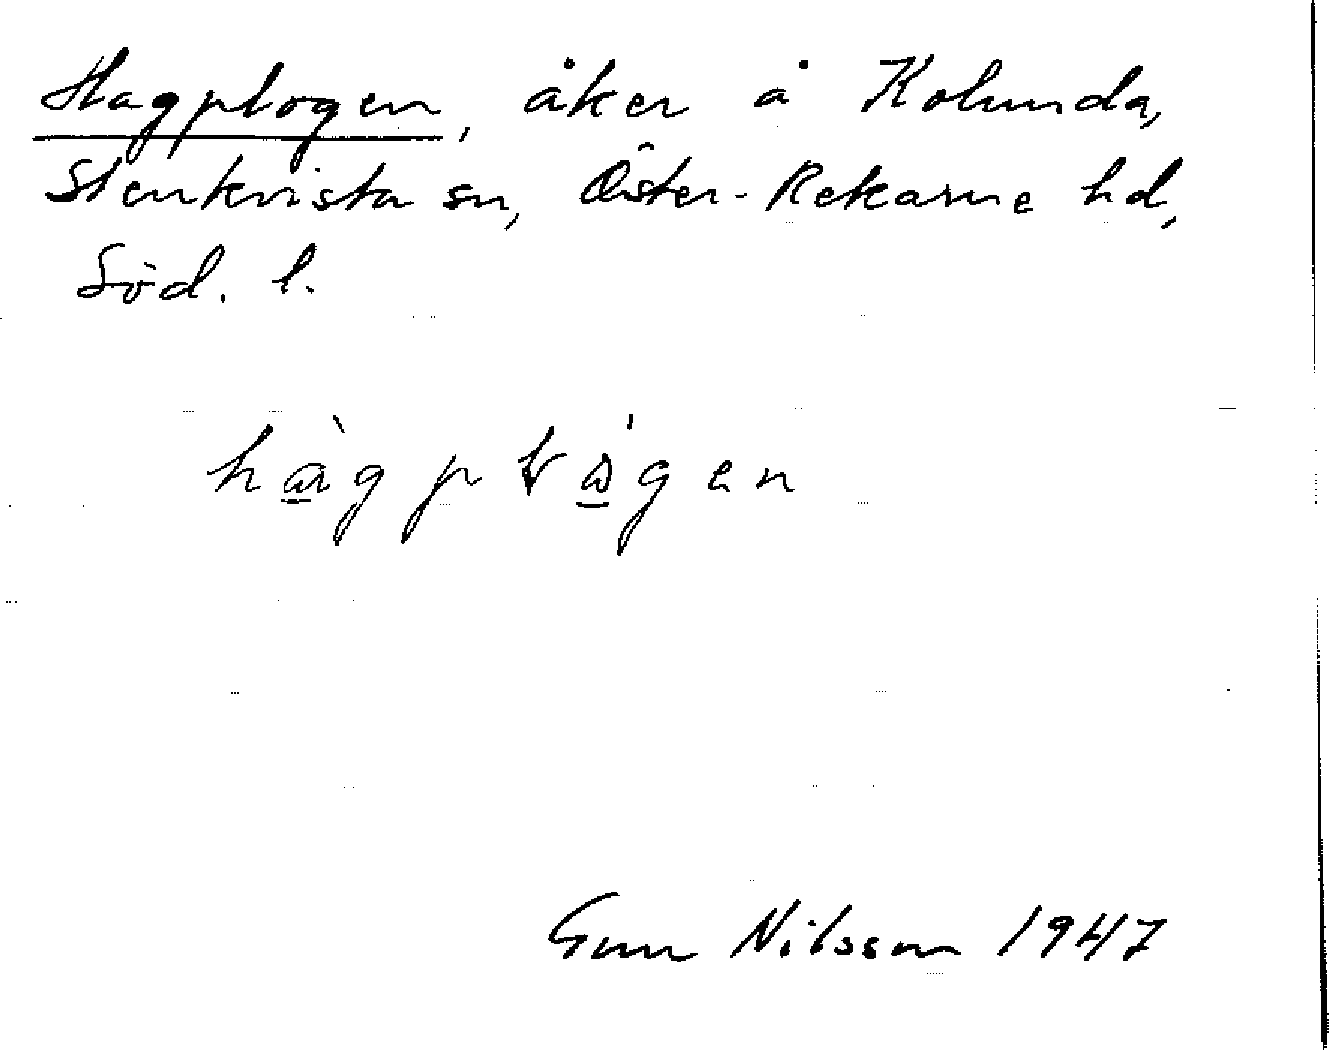 Hagplogen, åker å Kolunda,
Stenkvista sn, Öster-Rekarne hd,
Söd. l.
Gun Nilsson 1947